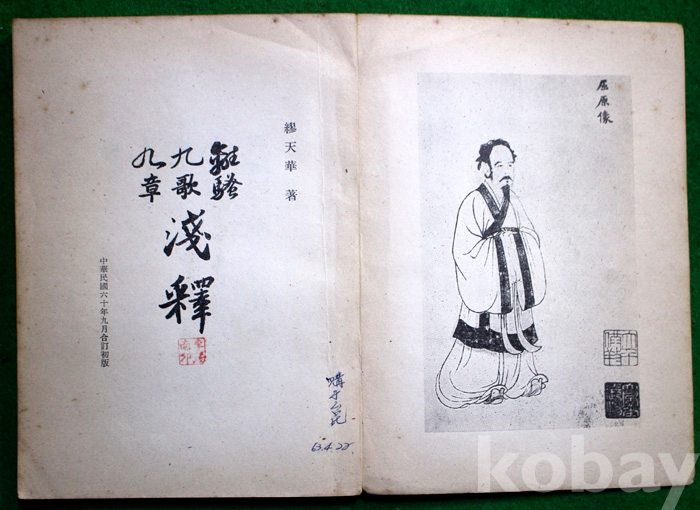 繆天華 著
離騷
九歌
九章
淺釋
中華民國六十年九月合訂初版
購于台北
63.4.22
屈原像
kobay